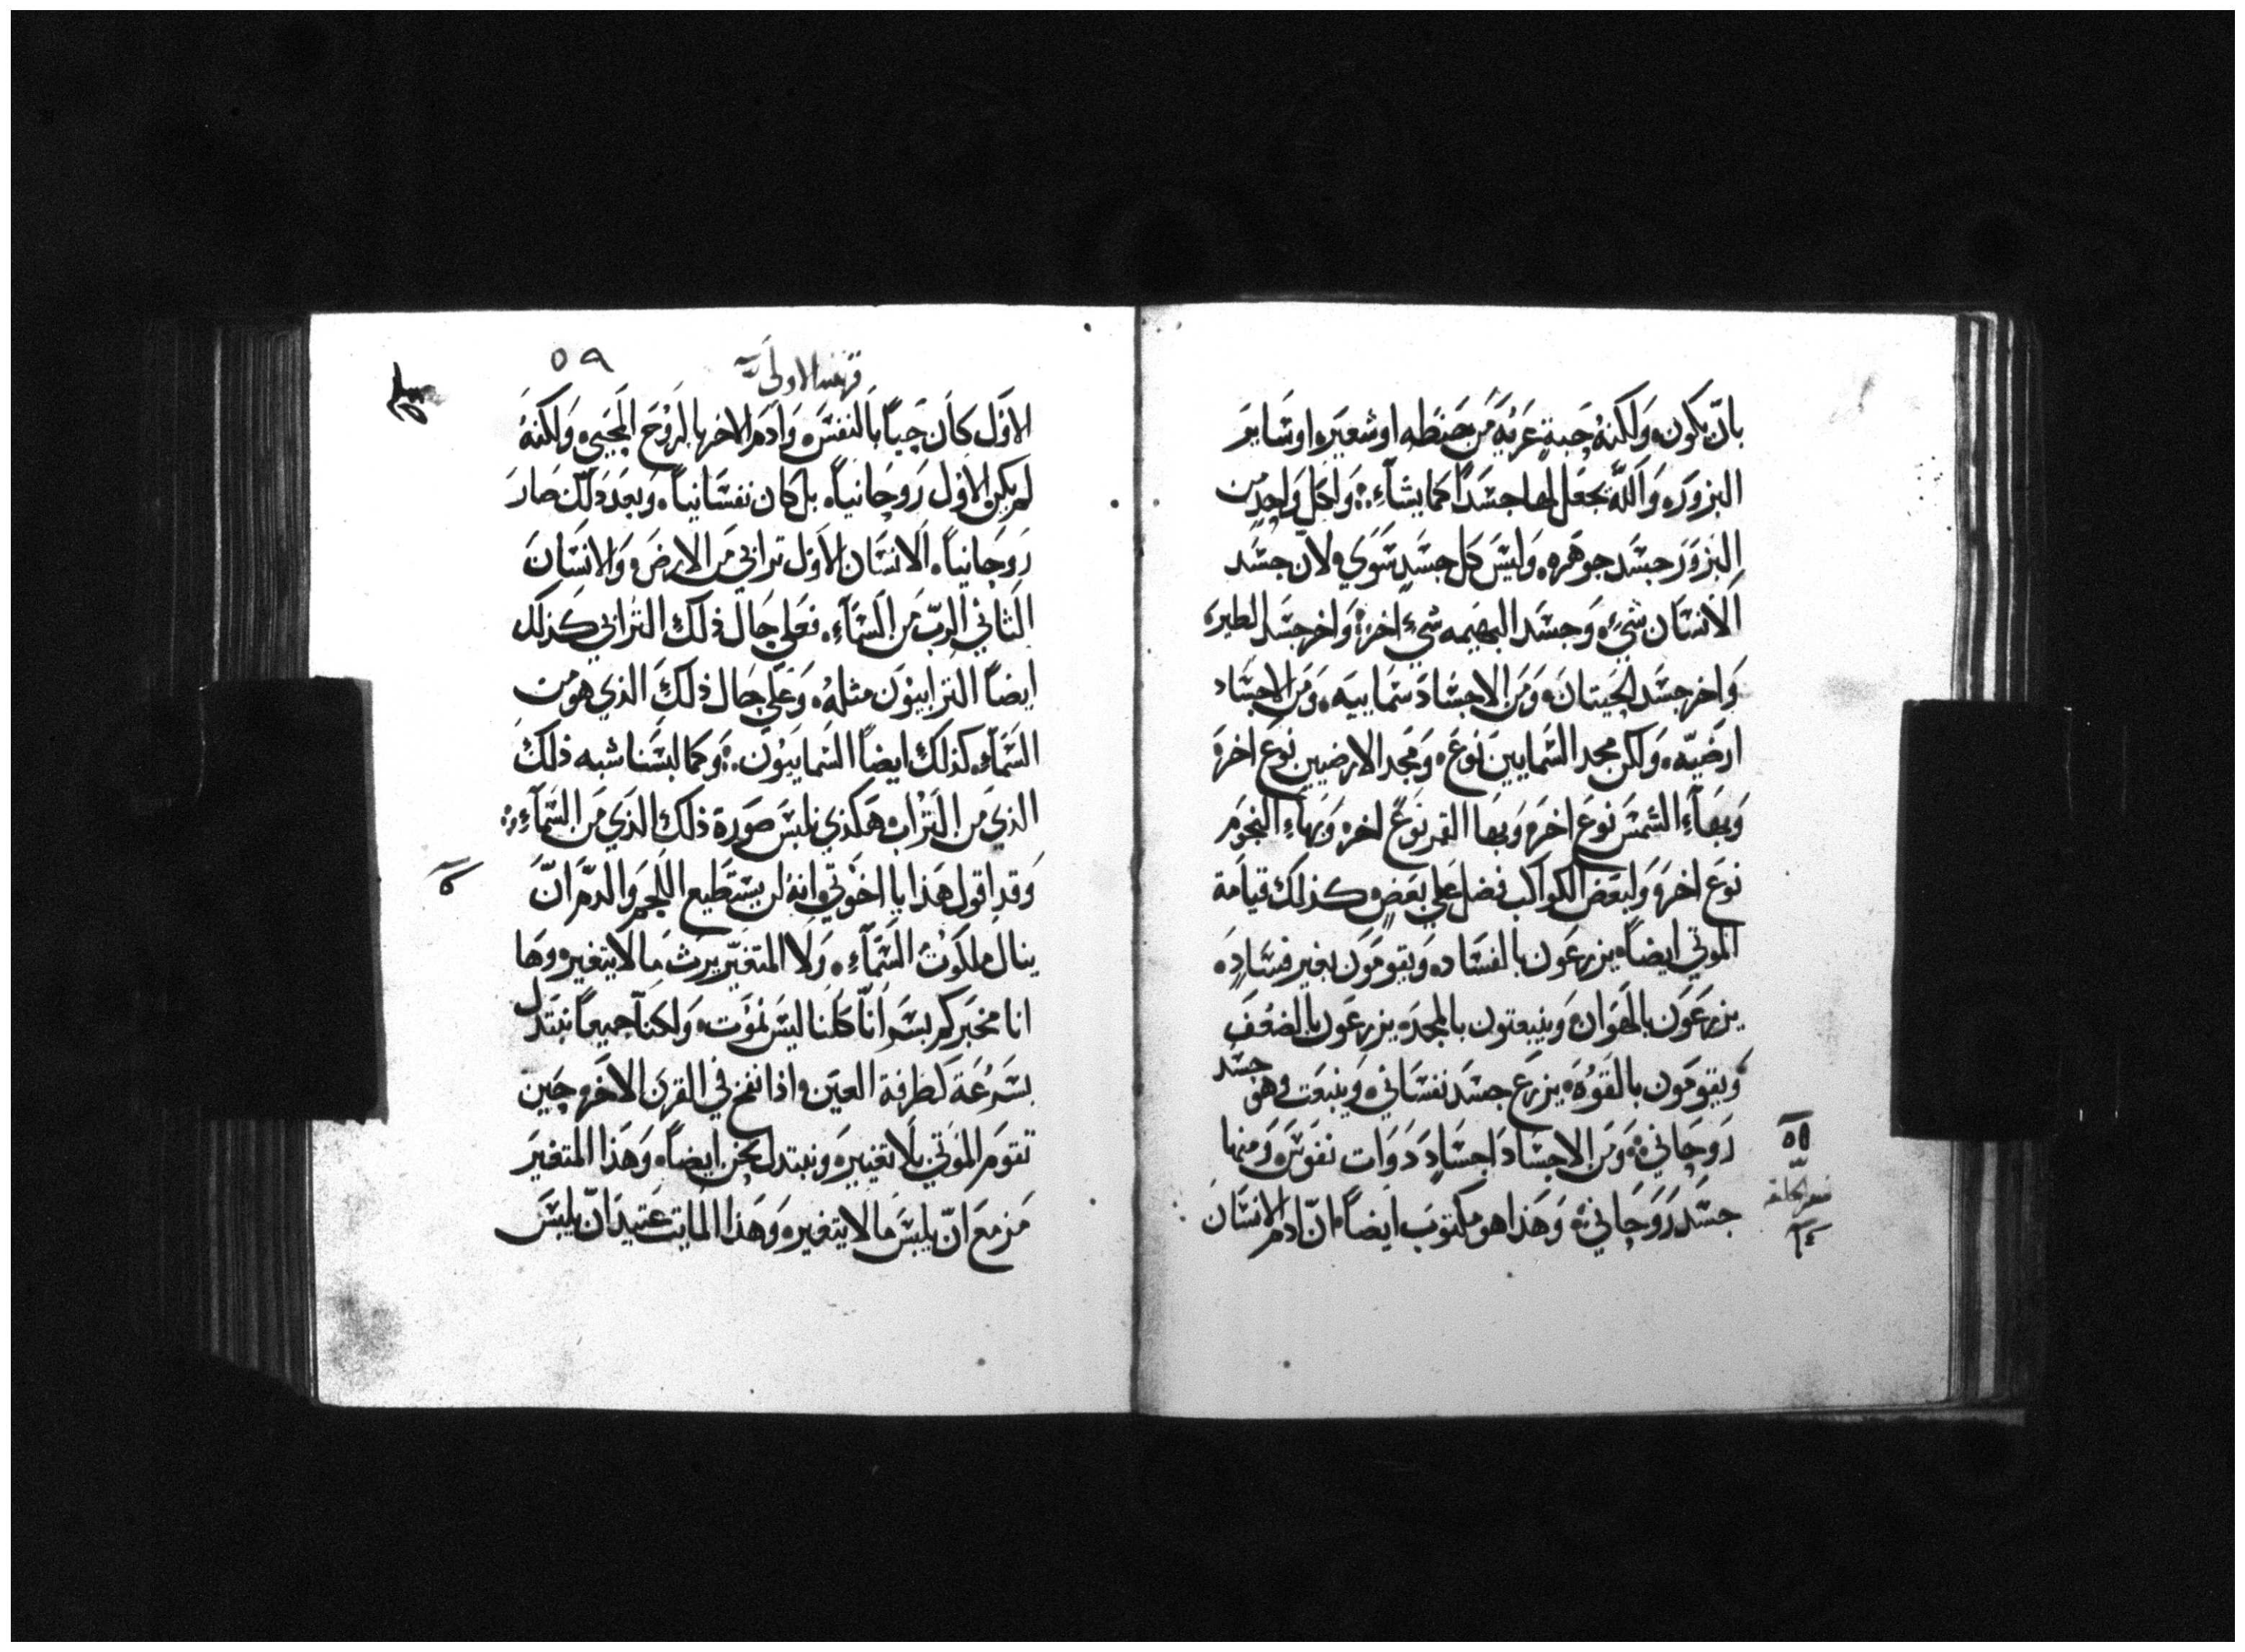 بان يكون ولكنه حبة عرية من حنطه او شعير او ساير
البزور والله يجعل لها جسداً كما يشآء ولكل واحد من
البزور جسد جوهره وليس كل جسد سوي لان جسد
الانسان شيء وجسد البهيمه شيء اخر واخر جسد الطير
واخر جسد الحيتان ومن الاجساد سماييه ومن الاجساد
ارضيه ولكن مجد السمايين نوع ومجد الارضيين نوع اخر
وبهآء الشمس نوع اخر وبها القمر نوع اخر وبهاء النجوم
نوع اخر ولبعض الكواكب فضل علي بعض كذلك قيامة
الموتي ايضاً يزرعون بالفساد ويقومون بغير فساد
يزرعون بالهوان وينبعتون بالمجد يزرعون بالضعف
ويقومون بالقوه يزرع جسد نفساني وينبعت وهو جسد
روحاني ومن الاجساد اجساد دوات نفوس ومنها
جسد روحاني وهذا هو مكتوب ايضاً ان ادم الانسان
٥٥
سفر الخليقه
٥٩
قرنتيه الاولي
الاول كان حياً بالنفس وادم الاخر بالروح المحيي ولكنه
لم يكن الاول روحانياً بل كان نفسانياً وبعد دلك صار
روحانياً الانسان الاول ترابي من الارض والانسان
الثاني الرب من السمآء فعلي حال ذلك الترابي كذلك
ايضاً الترابيون مثله وعلي حال ذلك الذي هو من
السمآء كذلك ايضاً السماييون وكما لبسنا شبه ذلك
الذي من التراب هكذي نلبس صورة ذلك الذي من السمآء
وقد اقول هذا يا اخوتي انه لن يستطيع اللحم والدم ان
ينال ملكوت السمآء ولا المتغير يرث ما لا يتغير وها
انا مخبركم بسر انا كلنا ليس نموت ولكنا جميعاً نبتدل
بسرعة كطرفة العين اذا نفخ في القرن الاخر حين
تقوم الموتي بلا تغيير ونبتدل نحن ايضاً وهذا المتغير
مزمع ان يلبس ما لا يتغير وهذا المايت عتيد ان يلبس